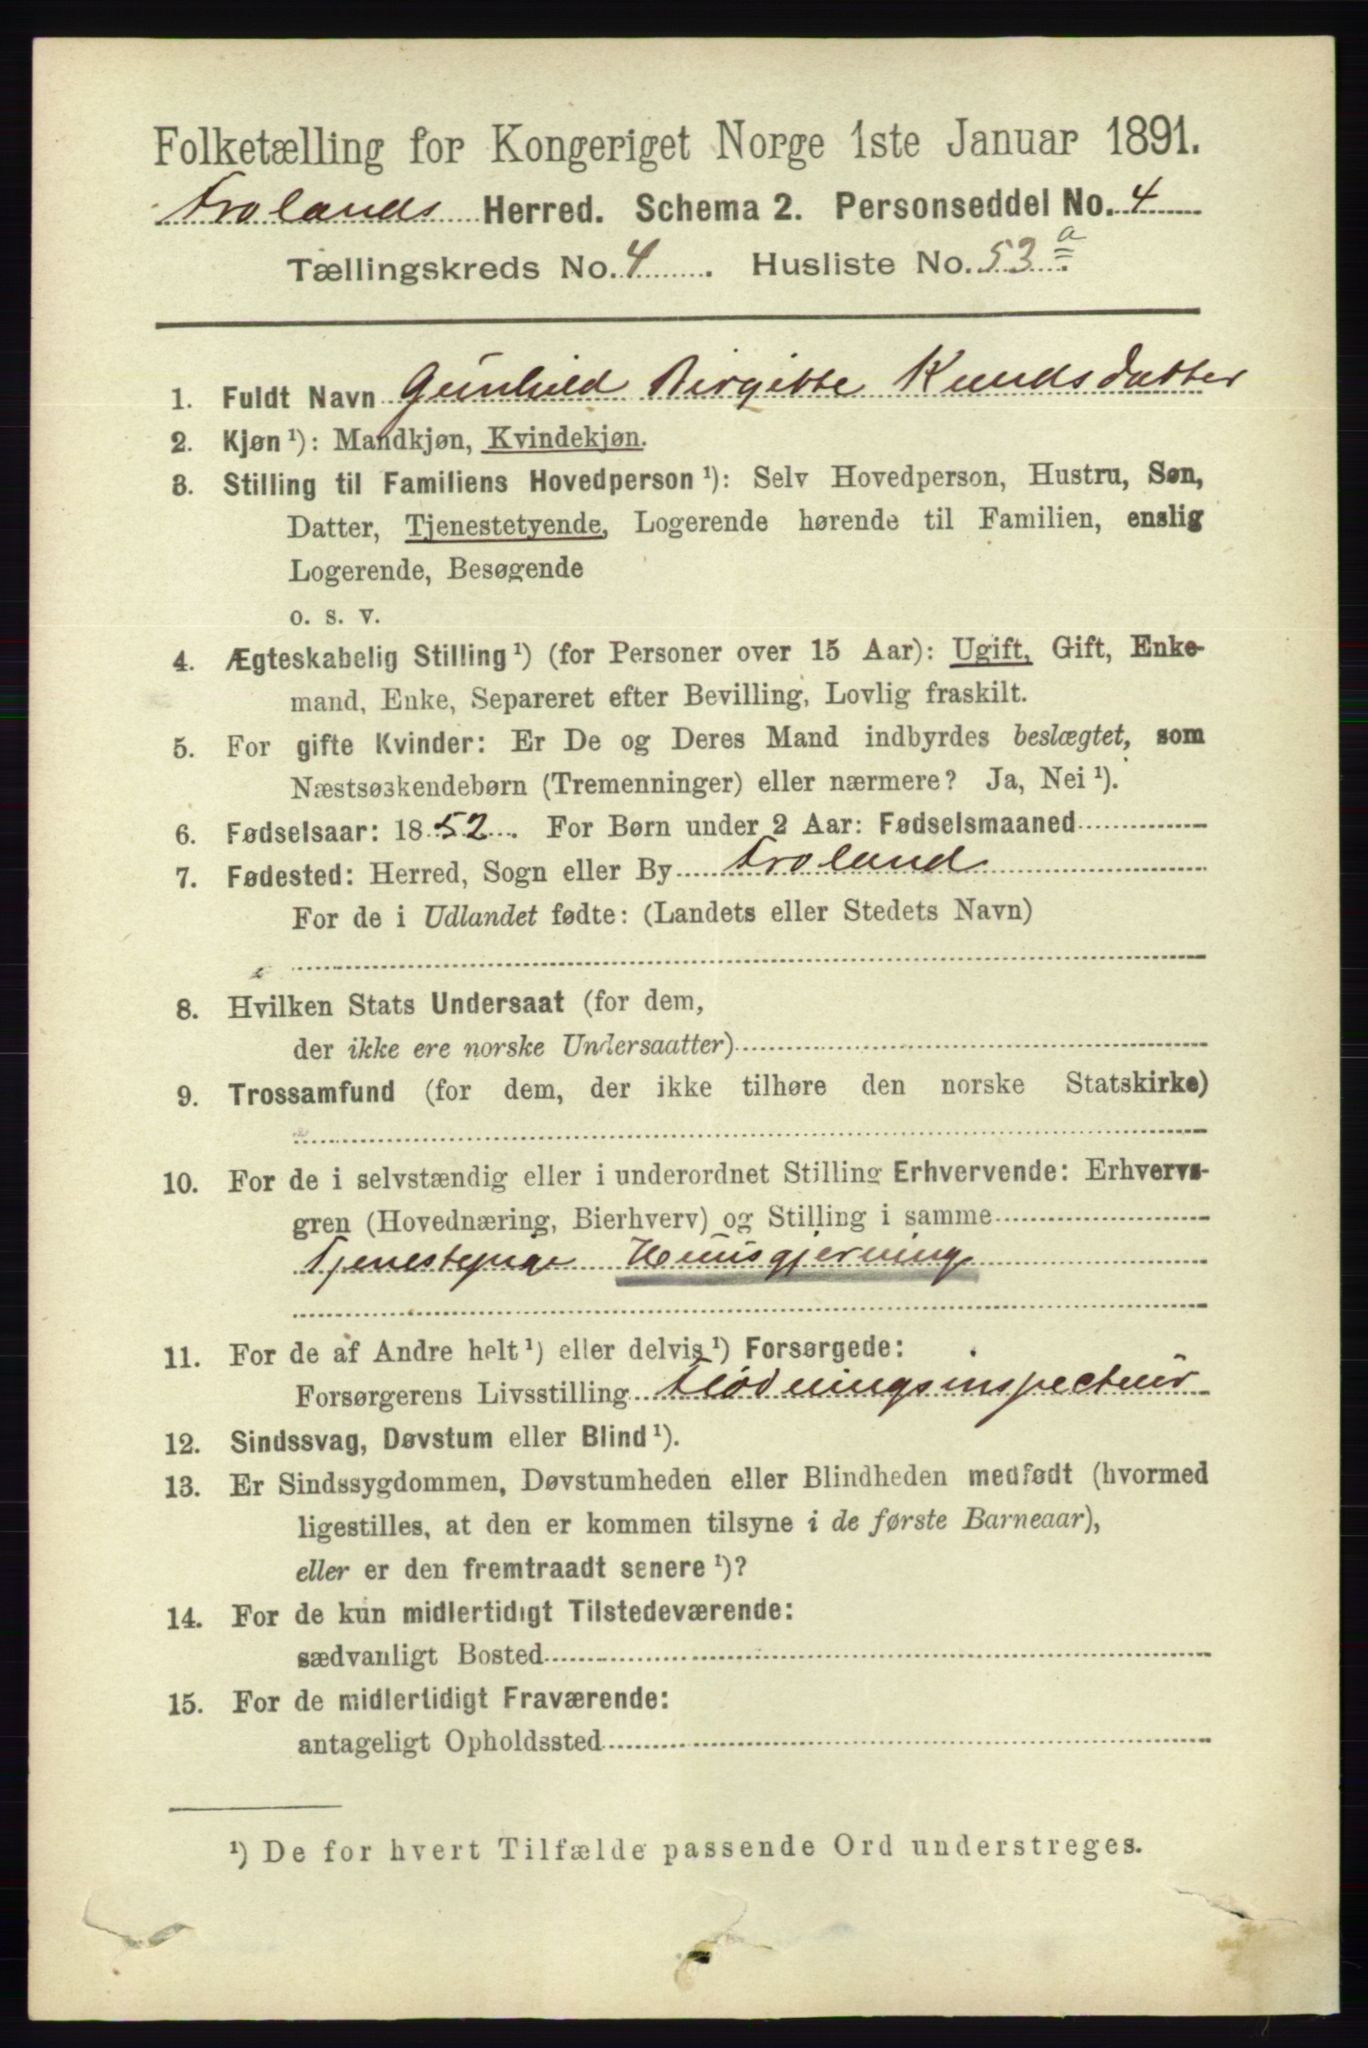 Folketælling for Kongeriget Norge 1ste Januar 1891.
Frolands Herred. Schema 2. Personseddel No. 4
Tællingskreds No. 4. Husliste No. 53 a
1. Fuldt Navn Gunhild Birgitte Knudsdatter
2. Kjøn ¹): Mandkjøn, Kvindekjøn.
3. Stilling til Familiens Hovedperson ¹): Selv Hovedperson, Hustru, Søn,
Datter, Tjenestetyende, Logerende hørende til Familien, enslig
Logerende, Besøgende
o. s. v.
4. Ægteskabelig Stilling ¹) (for Personer over 15 Aar): Ugift, Gift, Enke-
mand, Enke, Separeret efter Bevilling, Lovlig fraskilt.
5. For gifte Kvinder: Er De og Deres Mand indbyrdes beslægtet, som
Næstsøskendebørn (Tremenninger) eller nærmere? Ja, Nei ¹).
6. Fødselsaar: 1852. For Børn under 2 Aar: Fødselsmaaned
7. Fødested: Herred, Sogn eller By Froland
For de i Udlandet fødte: (Landets eller Stedets Navn)
8. Hvilken Stats Undersaat (for dem,
der ikke ere norske Undersaatter)
9. Trossamfund (for dem, der ikke tilhøre den norske Statskirke)
10. For de i selvstændig eller i underordnet Stilling Erhvervende: Erhvervs-
gren (Hovednæring, Bierhverv) og Stilling i samme
Tjenestepige Huusgjerning
11. For de af Andre helt ¹) eller delvis ¹) Forsørgede:
Forsørgerens Livsstilling Flødningsinspecteur
12. Sindssvag, Døvstum eller Blind ¹).
13. Er Sindssygdommen, Døvstumheden eller Blindheden medfødt (hvormed
ligestilles, at den er kommen tilsyne i de første Barneaar),
eller er den fremtraadt senere ¹)?
14. For de kun midlertidigt Tilstedeværende:
sædvanligt Bosted
15. For de midlertidigt Fraværende:
antageligt Opholdssted
¹) De for hvert Tilfælde passende Ord understreges.